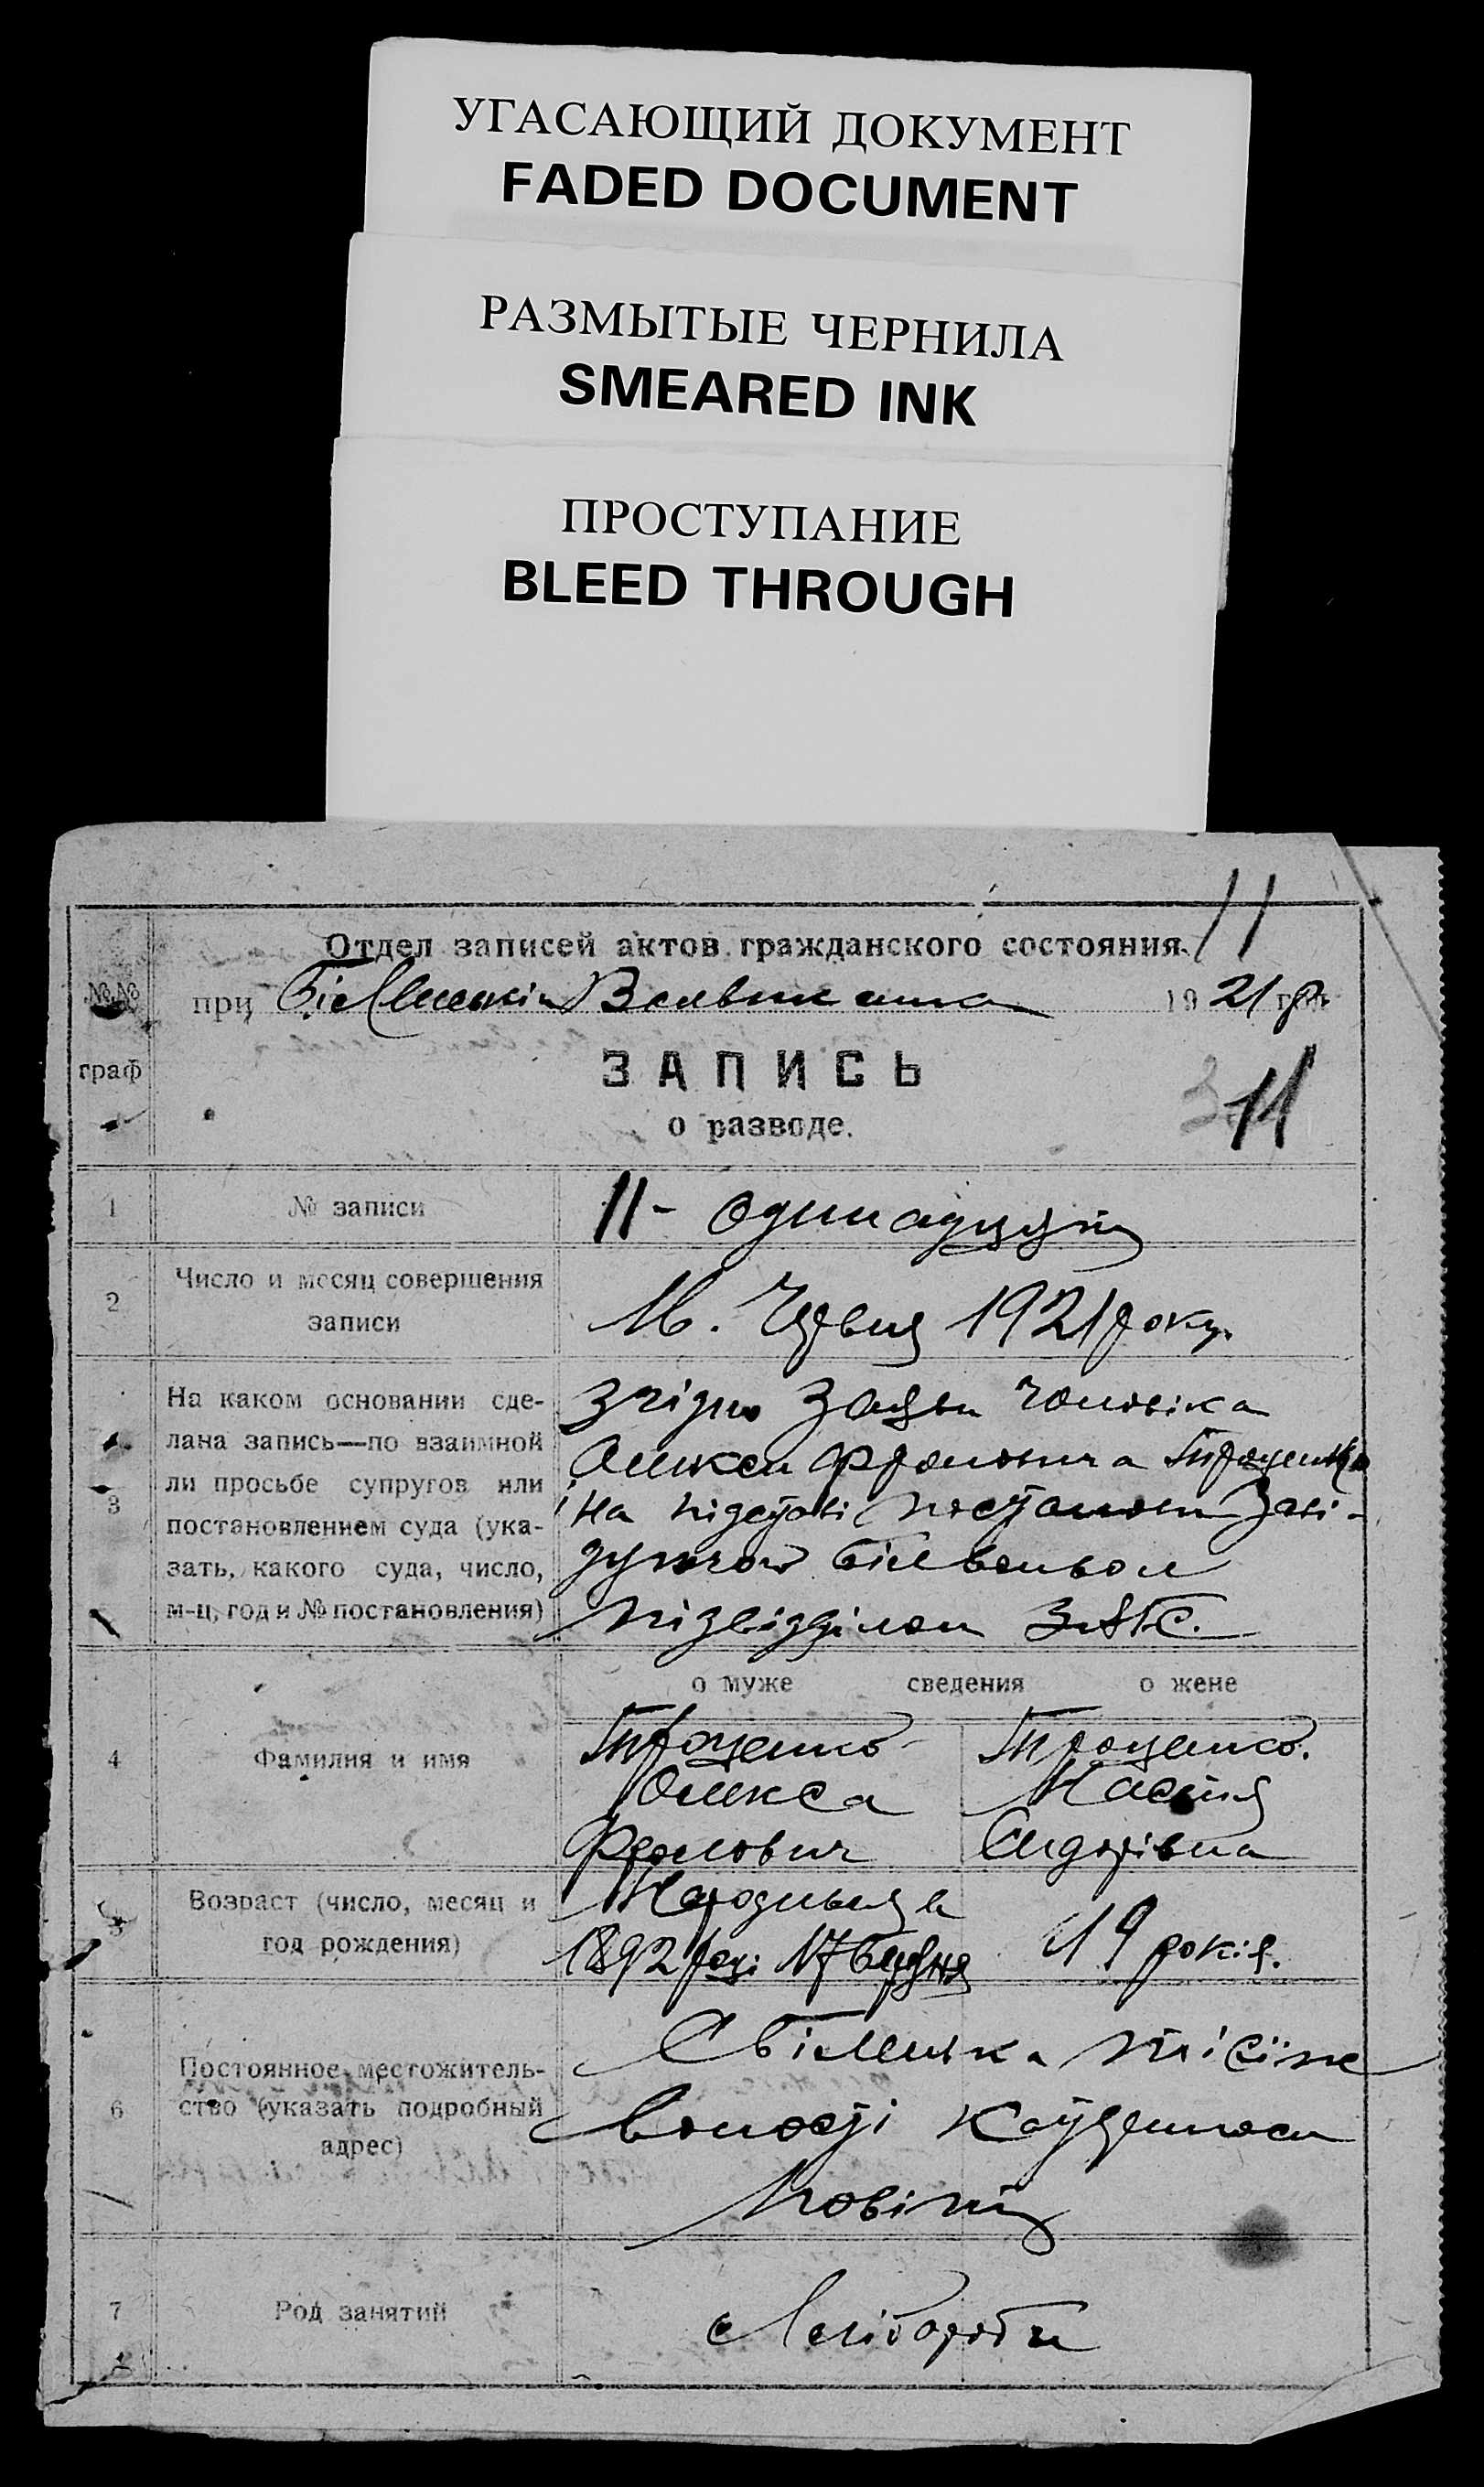 УГАСАЮЩИЙ ДОКУМЕНТ
FADED DOCUMENT
РАЗМЫТЫЕ ЧЕРНИЛА
SMEARED INK
ПРОСТУПАНИЕ
BLEED THROUGH
11
Отдел записей актов гражданского состояния
№№ при 1921 р
граф
ЗАПИСЬ
11
о разводе.
1 № записи 11-
2 Число и месяц совершения
записи 16. Червця 1921 року.
На каком основании сде- Згідно заяви чоловіка
лана запись—по взаимной Олекси Фроловича Троценка
3 ли просьбе супругов или на підставі постанови Заві-
постановлением суда (ука-
зать, какого суда, число,
м-ц, год и № постановления) підвідділом ЗАГС.
о муже сведения о жене
4 Фамилия и имя Троценко Троценко.
Олекса Настя
Фролович Сидорівна
5 Возраст (число, месяц и
год рождения) 1892 році 17 19 років.
6 Постоянное местожитель-
ство (указать подробный волості
адрес) повіту
7 Род занятий Хлібороби